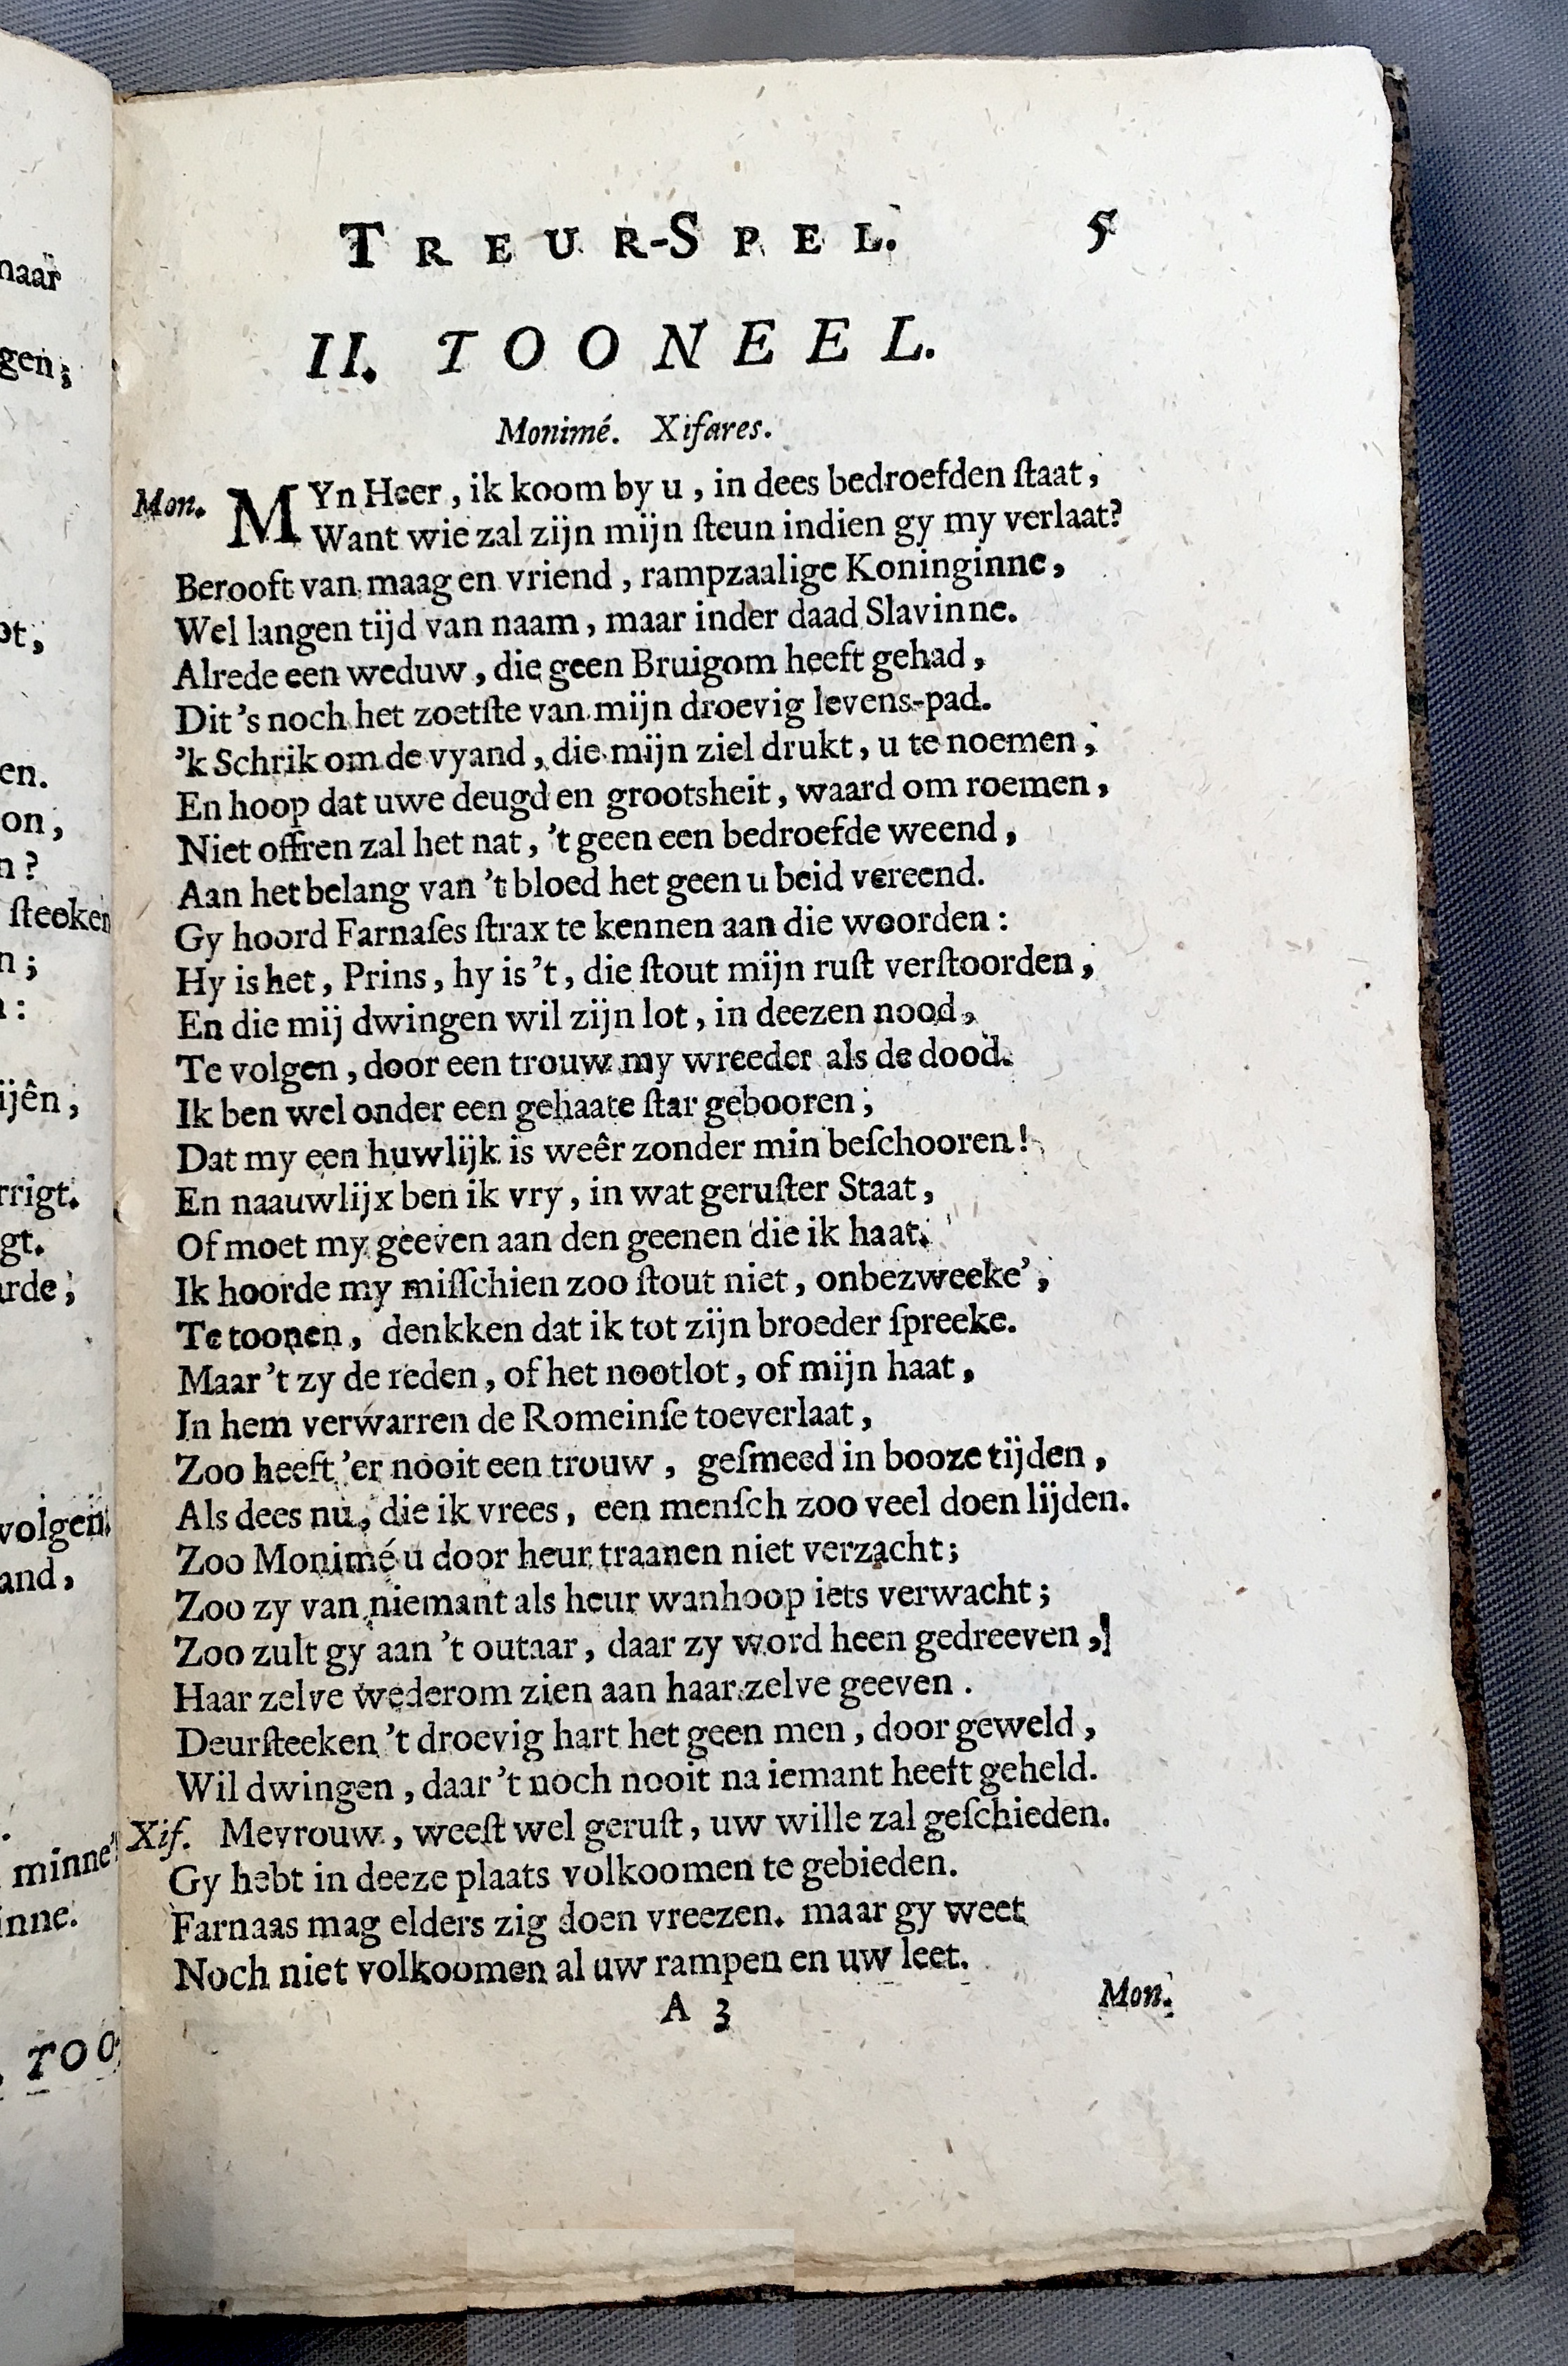 naar
gen;
ot,
en.
on,
n?
steeken
n;
n:
ijên,
rrigt.
gt.
arde;
volgen.
and,
minne'
inne.
TOO-
TREUR-SPEL. 5
II. TOONEEL.
Monimé. Xiſares.
Mon. MYn Heer, ik koom by u, in dees bedroefden ſtaat,
Want wie zal zijn mijn ſteun indien gy my verlaat?
Berooft van maag en vriend, rampzaalige Koninginne,
Wel langen tijd van naam, maar inder daad Slavinne.
Alrede een weduw, die geen Bruigom heeft gehad,
Dit 's noch het zoetſte van mijn droevig levens-pad.
'k Schrik om de vyand, die mijn ziel drukt, u te noemen,
En hoop dat uwe deugd en grootsheit, waard om roemen,
Niet offren zal het nat, 't geen een bedroefde weend,
Aan het belang van 't bloed het geen u beid vereend.
Gy hoord Farnaſes ſtrax te kennen aan die woorden:
Hy is het, Prins, hy is 't, die ſtout mijn ruſt verſtoorden,
En die mij dwingen wil zijn lot, in deezen nood,
Te volgen, door een trouw my wreeder als de dood.
Ik ben wel onder een gehaate ſtar gebooren;
Dat my een huwlijk is weêr zonder min beſchooren!
En naauwlijx ben ik vry, in wat geruſter Staat,
Of moet my geeven aan den geenen die ik haat.
Ik hoorde my miſſchien zoo ſtout niet, onbezweeke',
Te toonen, denkken dat ik tot zijn broeder ſpreeke.
Maar 't zy de reden, of het nootlot, of mijn haat,
In hem verwarren de Romeinſe toeverlaat,
Zoo heeft 'er nooit een trouw, geſmeed in booze tijden,
Als dees nu, die ik vrees, een menſch zoo veel doen lijden.
Zoo Monimé u door heur traanen niet verzacht;
Zoo zy van niemant als heur wanhoop iets verwacht;
Zoo zult gy aan 't outaar, daar zy word heen gedreeven,
Haar zelve wederom zien aan haar zelve geeven.
Deurſteeken 't droevig hart het geen men, door geweld,
Wil dwingen, daar 't noch nooit na iemant heeft geheld.
Xiſ. Mevrouw, weeſt wel geruſt, uw wille zal geſchieden.
Gy hebt in deeze plaats volkoomen te gebieden.
Farnaas mag elders zig doen vreezen. maar gy weet
Noch niet volkoomen al uw rampen en uw leet.
A 3 Mon.